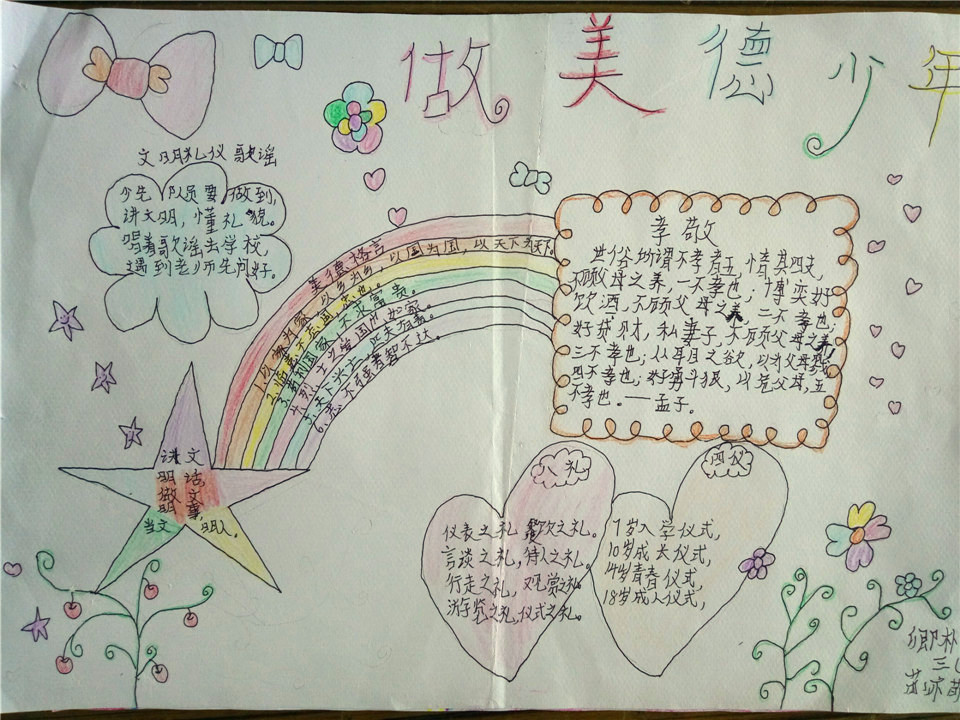 做美德少年
文明礼仪歌谣
少先队员要做到,
讲文明,懂礼貌。
唱着歌谣去学校,
遇到老师先问好。
美德格言
1.以家为家,以乡为乡,以国为国,以天下为天下。
2.临患不忘国,忠也。
3.苟利国家,不求富贵。
4.烈士之爱国也如家。
5.天下兴亡,匹夫有责。
6.志不强者智不达。
孝敬
世俗所谓不孝者五,惰其四支,
不顾父母之养,一不孝也;博奕好
饮酒,不顾父母之养,二不孝也;
好货财,私妻子,不顾父母之养,
三不孝也;从耳目之欲,以为父母戮,
四不孝也;好勇斗狠,以危父母,五
不孝也。——孟子。
讲文
明话,
做文
明事,
当文明人。
八礼
仪表之礼,餐饮之礼。
言谈之礼,待人之礼。
行走之礼,观赏之礼
游览之礼,仪式之礼。
四仪
7岁入学仪式,
10岁成长仪式,
14岁青春仪式,
18岁成人仪式,
三